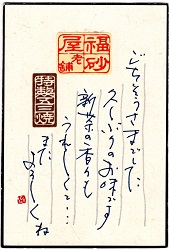 ごちそうさまでした
久しぶりのお味です
新茶の香りも
うれしくて…
また
よろしくね
福砂屋
老舗
特製五三焼